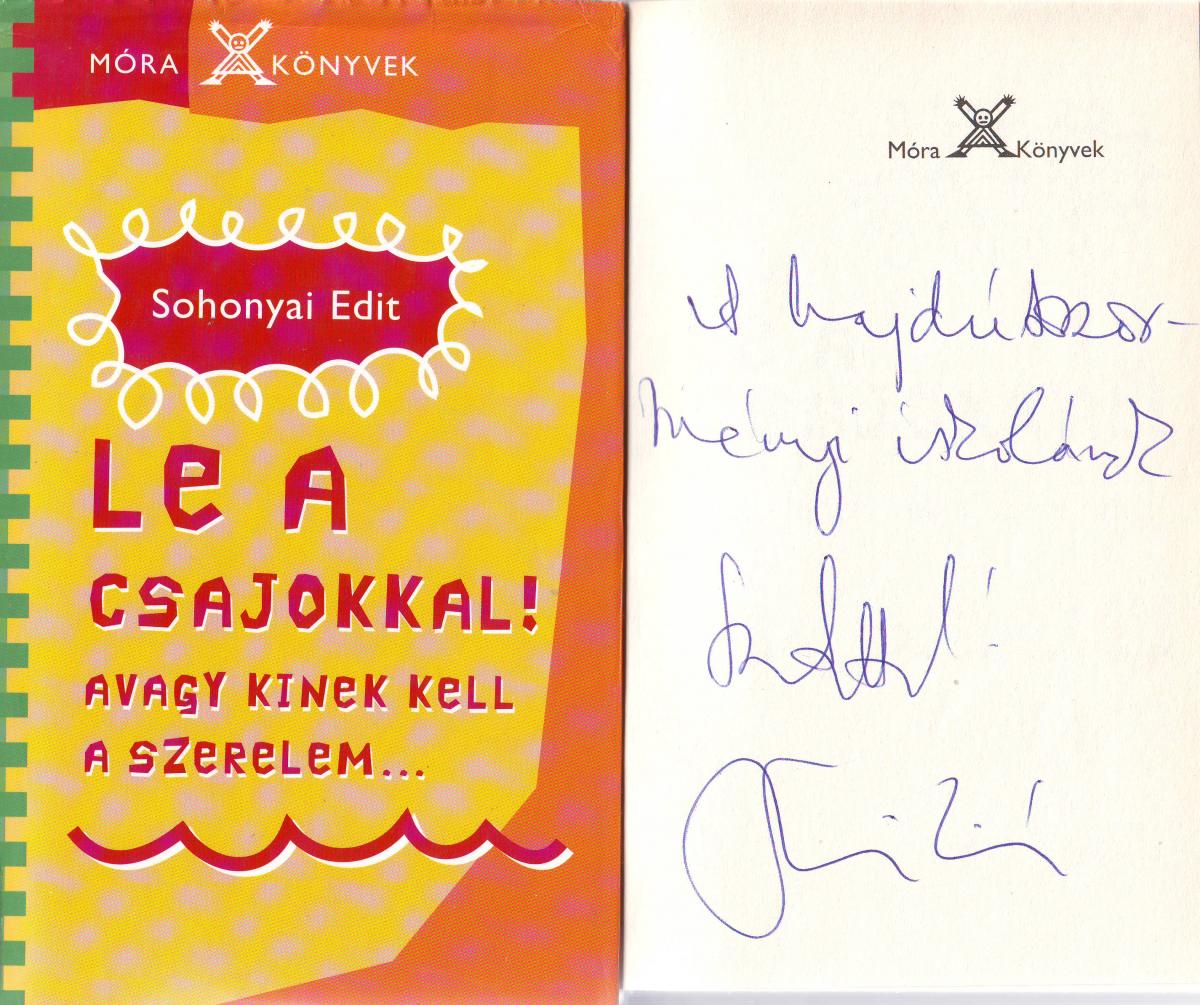 MÓRA KÖNYVEK
Sohonyai Edit
Le A
CSAJOKKAL!
AVAGY KINEK KELL
A SZERELEM...
Móra Könyvek
A hajdúböször-
ményi iskolának
Szeretettel!